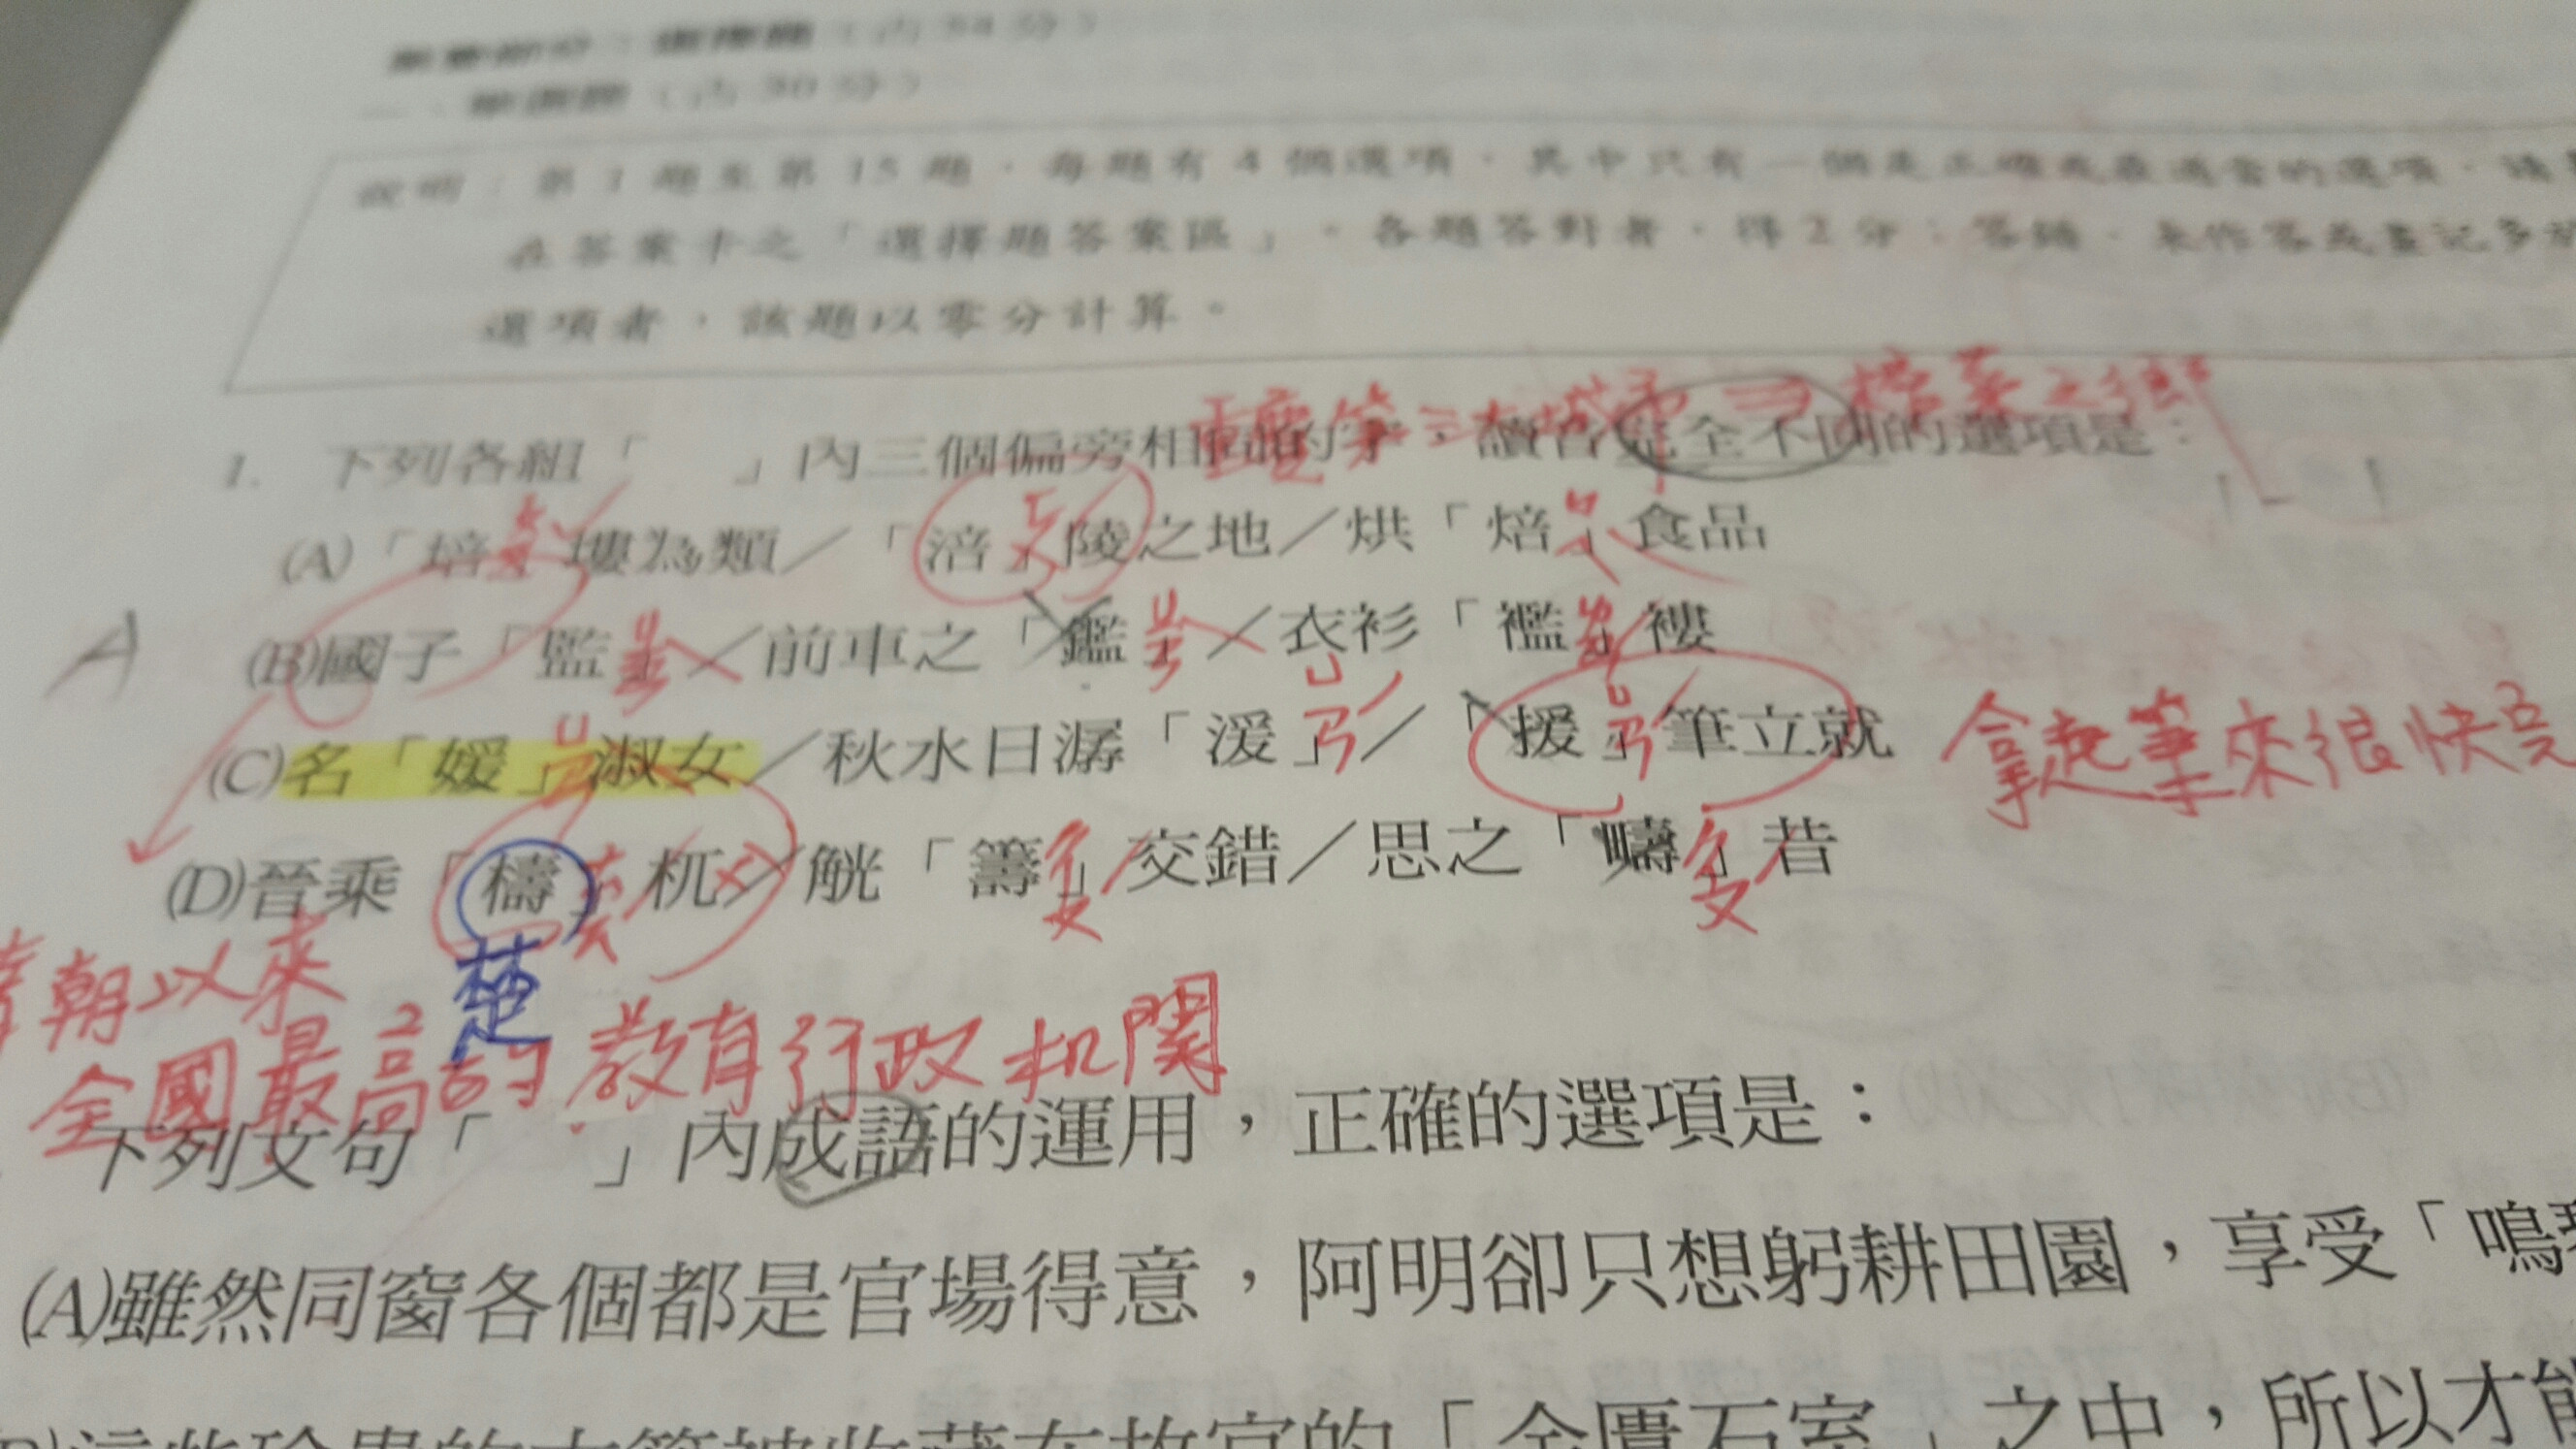 說明：第1題至第15題，每題有4個選項，其中只有一個是正確或最適當的選項，請
在答案卡之「選擇題答案區」。各題答對者，得2分；答錯、未作答或畫記多於
選項者，該題以零分計算。
重慶第三大城市 ⇒ 榨菜之鄉
1. 下列各組「 」內三個偏旁相同的字，讀音完全不同的選項是：
(A)「培」塿為類／「涪」陵之地／烘「焙」食品
(B)國子「監」／前車之「鑑」／衣衫「襤」褸
A
(C)名「媛」淑女／秋水日潺「湲」／「援」筆立就
拿起筆來很快完
(D)晉乘「檮」杌／觥「籌」交錯／思之「疇」昔
朝以來
楚
全國最高的教育行政机関
下列文句「 」內成語的運用，正確的選項是：
(A)雖然同窗各個都是官場得意，阿明卻只想躬耕田園，享受「鳴
的「金匱石室」之中，所以才能